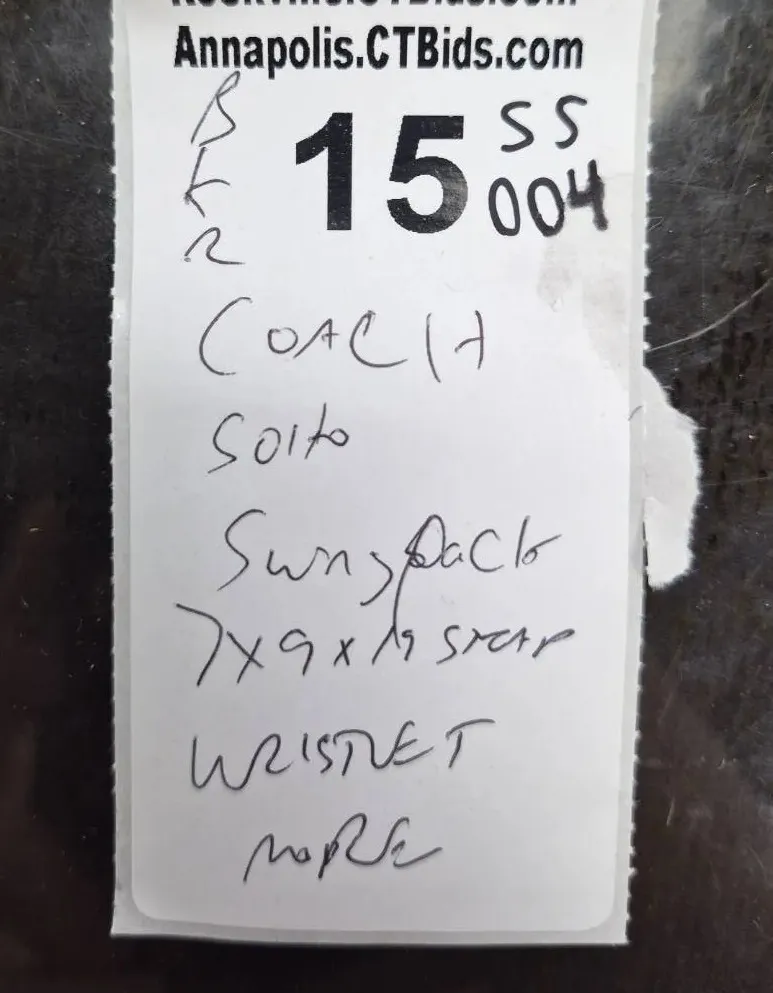 Annapolis.CTBids.com
B
K
R
15 SS
004
COACH
Soho
SwingPack
7x9x19 STRAP
WRISTLET
MORE